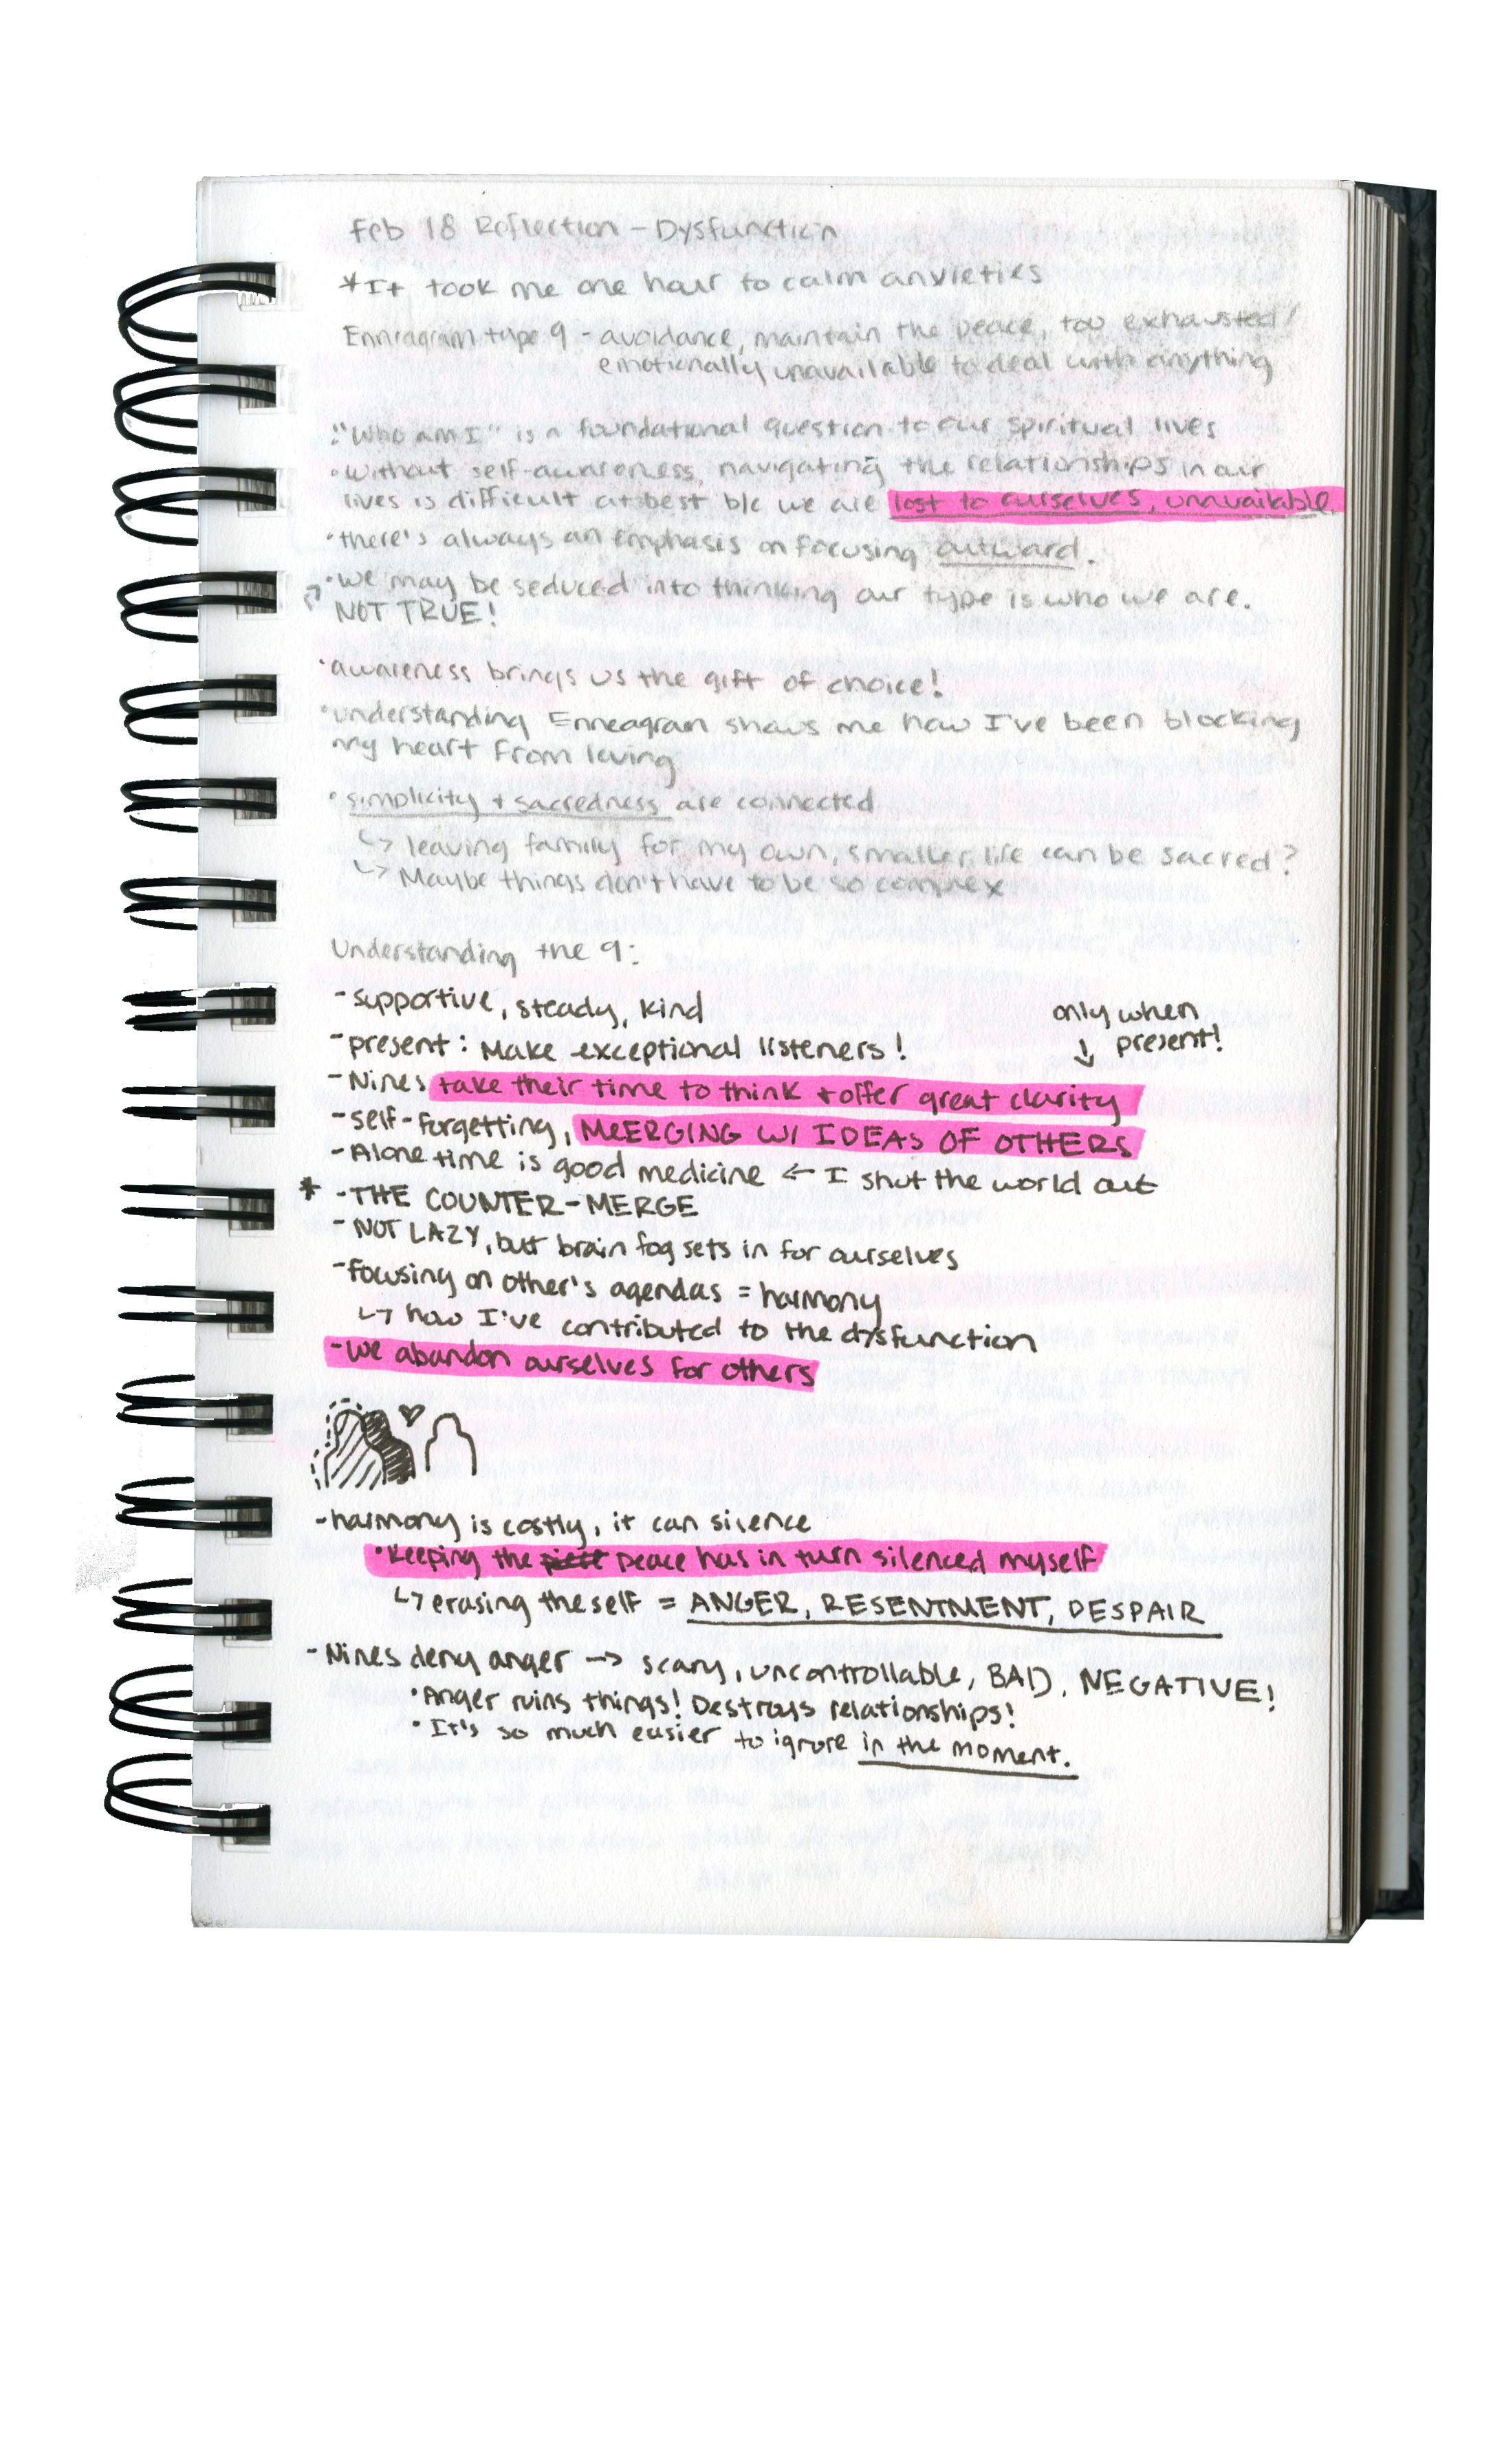 Feb 18 Reflection - Dysfunction
*It took me one hour to calm anxieties
Enneagram type 9 - avoidance, maintain the peace, too exhausted/
emotionally unavailable to deal with anything
• "Who am I" is a foundational question to our spiritual lives
• Without self-awareness, navigating the relationships in our
lives is difficult at best b/c we are lost to ourselves, unavailable.
• there's always an emphasis on focusing outward.
• we may be seduced into thinking our type is who we are.
NOT TRUE!
• awareness brings us the gift of choice!
• understanding Enneagram shows me how I've been blocking
my heart from loving
• simplicity + sacredness are connected
↳ leaving family for my own, smaller life can be sacred?
↳ Maybe things don't have to be so complex
Understanding the 9:
- supportive, steady, kind
only when
present!
- present: Make exceptional listeners! ↓
- Nines take their time to think + offer great clarity
- self-forgetting, MERGING W/ IDEAS OF OTHERS
- Alone time is good medicine ← I shut the world out
* - THE COUNTER-MERGE
- NOT LAZY, but brain fog sets in for ourselves
- focusing on other's agendas = harmony
↳ how I've contributed to the dysfunction
- we abandon ourselves for others
- harmony is costly, it can silence
• keeping the peace has in turn silenced myself
↳ erasing the self = ANGER, RESENTMENT, DESPAIR
- Nines deny anger → scary, uncontrollable, BAD, NEGATIVE!
• Anger ruins things! Destroys relationships!
• It's so much easier to ignore in the moment.